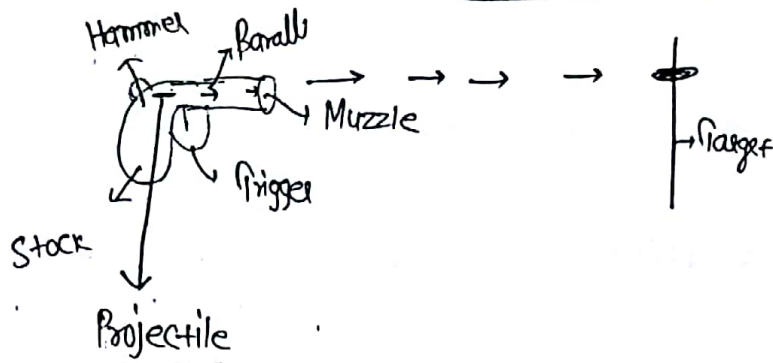 Hammer
Baralls
Muzzle
Target
Trigger
Stock
Projectile